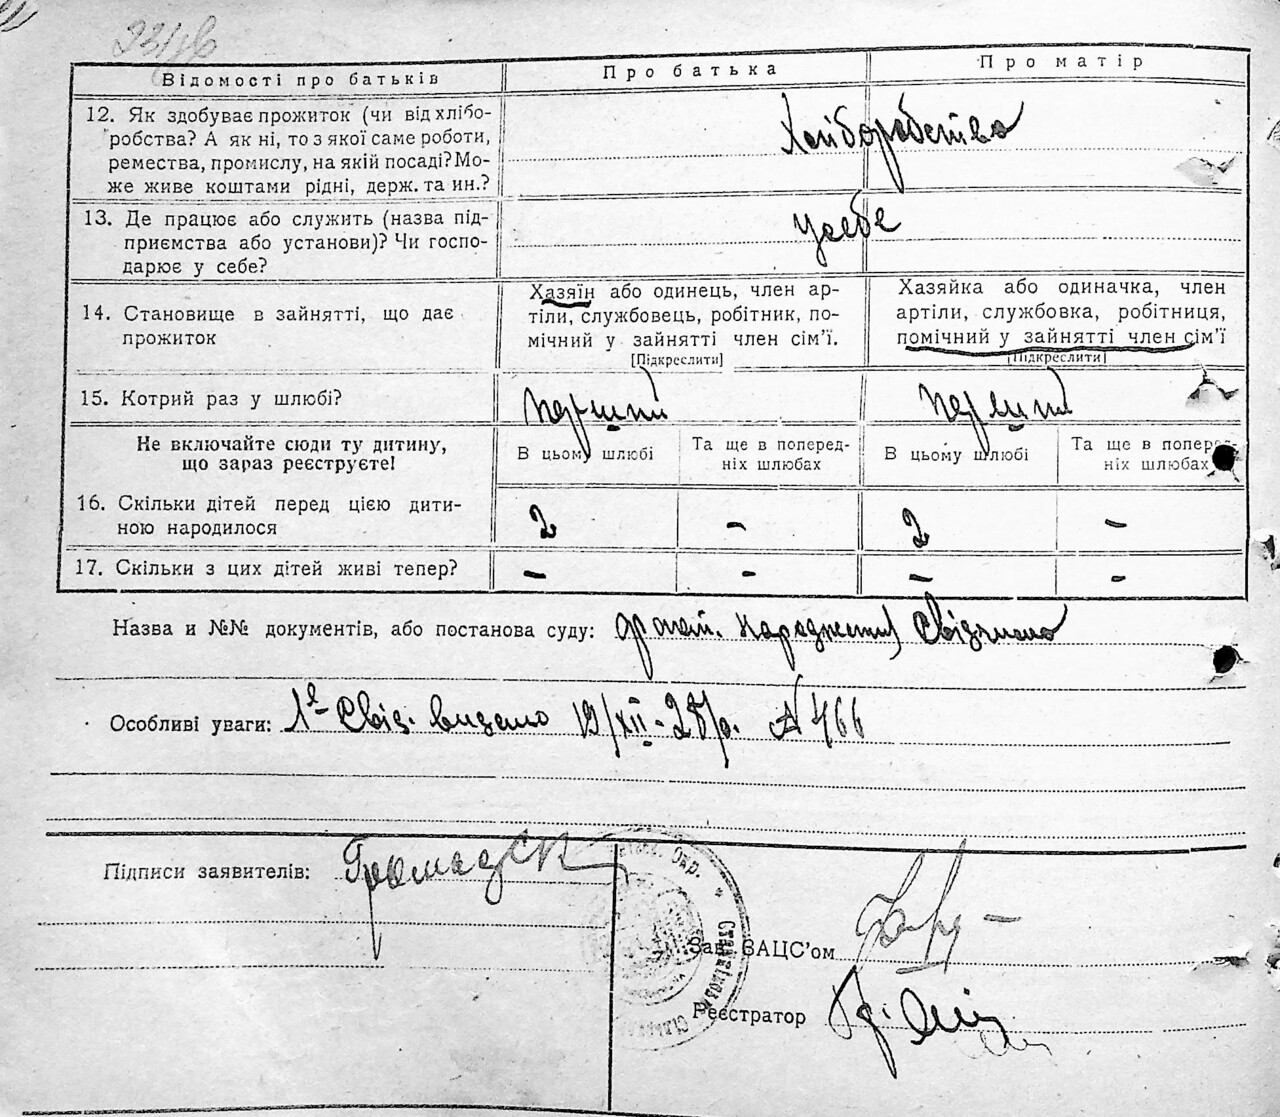 23/
Відомості про батьків Про батька Про матір
12. Як здобуває прожиток (чи від хлібо-
робства? А як ні, то з якої саме роботи,
ремества, промислу, на якій посаді? Мо-
же живе коштами рідні, держ. та ин.?
Хліборобство
13. Де працює або служить (назва під-
приємства або установи)? Чи госпо-
дарює у себе?
У себе
14. Становище в зайнятті, що дає
прожиток
Хазяїн або одинець, член ар-
тіли, службовець, робітник, по-
мічний у зайнятті член сім'ї.
[Підкреслити]
Хазяйка або одиначка, член
артіли, службовка, робітниця,
помічний у зайнятті член сім'ї
[Підкреслити]
15. Котрий раз у шлюбі? перший перший
Не включайте сюди ту дитину,
що зараз реєструєте!
В цьому шлюбі
Та ще в поперед-
ніх шлюбах
В цьому шлюбі
Та ще в поперед-
ніх шлюбах
16. Скільки дітей перед цією дити-
ною народилося
2 - 2 -
17. Скільки з цих дітей живі тепер? - - - -
Назва и №№ документів, або постанова суду:
Особливі уваги: Свід. видано 19/XII-28/р. № 466
Підписи заявителів: Громадск
Окр.
Зав. ЗАЦС'ом
Реєстратор